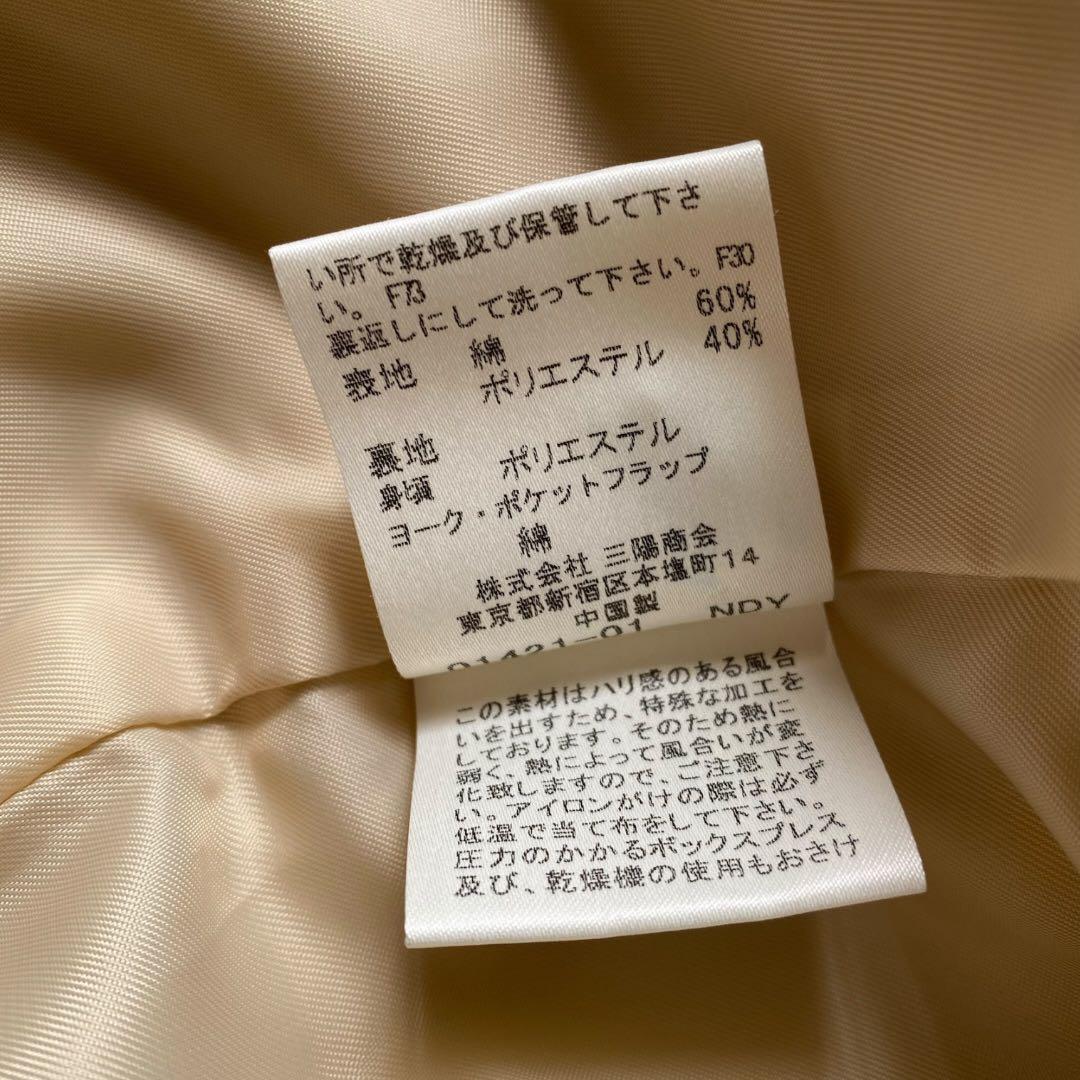 い所で乾燥及び保管して下さ
い。 F73
裏返しにして洗って下さい。F30
表地 綿 60%
ポリエステル 40%
裏地
身頃 ポリエステル
ヨーク・ポケットフラップ
綿
株式会社 三陽商会
東京都新宿区本塩町14
中国製
01421-01 NDY
この素材はハリ感のある風合
いを出すため、特殊な加工を
しております。そのため熱に
弱く、熱によって風合いが変
化致しますので、ご注意下さ
い。アイロンがけの際は必ず
低温で当て布をして下さい。
圧力のかかるボックスプレス
及び、乾燥機の使用もおさけ